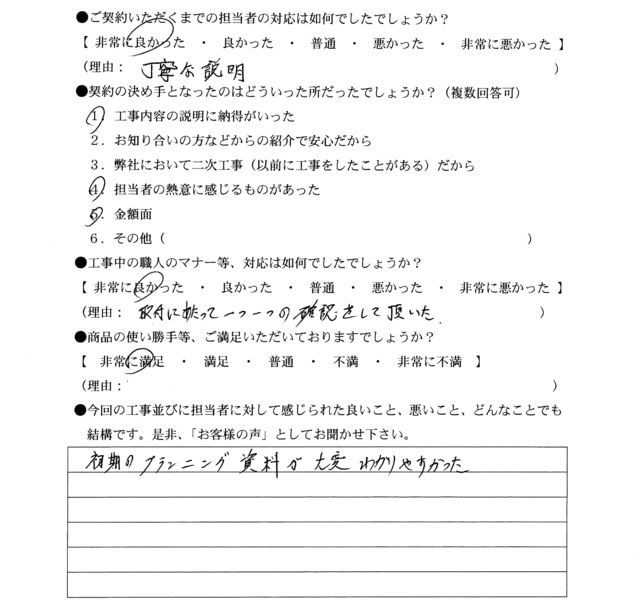 ●ご契約いただくまでの担当者の対応は如何でしたでしょうか？
【 非常に良かった ・ 良かった ・ 普通 ・ 悪かった ・ 非常に悪かった 】
(理由： 丁寧な説明 )
●契約の決め手となったのはどういった所だったでしょうか？（複数回答可）
1．工事内容の説明に納得がいった
2．お知り合いの方などからの紹介で安心だから
3．弊社において二次工事（以前に工事をしたことがある）だから
4．担当者の熱意に感じるものがあった
5．金額面
6．その他（ ）
●工事中の職人のマナー等、対応は如何でしたでしょうか？
【 非常に良かった ・ 良かった ・ 普通 ・ 悪かった ・ 非常に悪かった 】
(理由： 取付に於って一つ一つの確認をして頂いた. )
●商品の使い勝手等、ご満足いただいておりますでしょうか？
【 非常に満足 ・ 満足 ・ 普通 ・ 不満 ・ 非常に不満 】
(理由： )
●今回の工事並びに担当者に対して感じられた良いこと、悪いこと、どんなことでも
結構です。是非、「お客様の声」としてお聞かせ下さい。
初期のプランニング資料が大変わかりやすかった